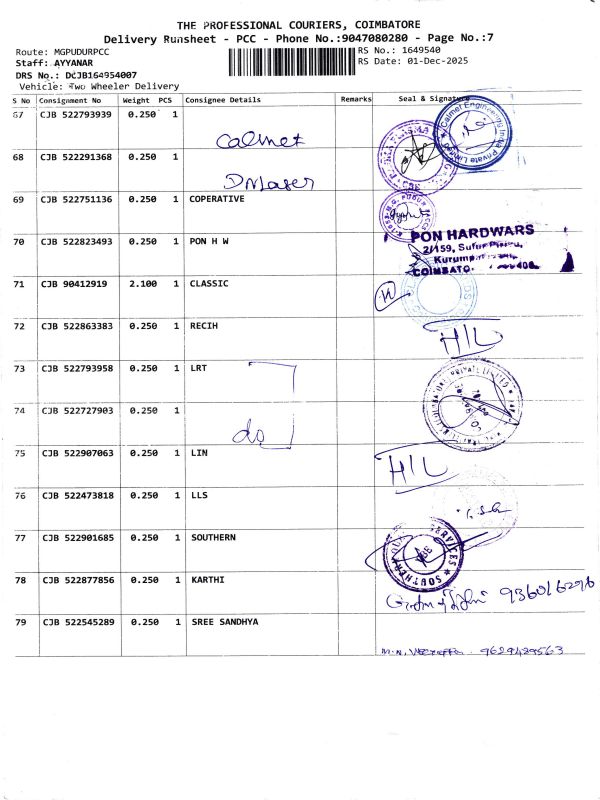 THE PROFESSIONAL COURIERS, COIMBATORE
Delivery Runsheet - PCC - Phone No.:9047080280 - Page No.:7
Route: MGPUDURPCC RS No.: 1649540
Staff: AYYANAR RS Date: 01-Dec-2025
DRS No.: DCJB164954007
Vehicle: Two Wheeler Delivery
S No Consignment No Weight PCS Consignee Details Remarks Seal & Signature
67 CJB 522793939 0.250 1 Calmet
68 CJB 522291368 0.250 1 DM Laser
69 CJB 522751136 0.250 1 COPERATIVE
70 CJB 522823493 0.250 1 PON H W PON HARDWARS
2/159,
COIMBATO
71 CJB 90412919 2.100 1 CLASSIC
72 CJB 522863383 0.250 1 RECIH H/L
73 CJB 522793958 0.250 1 LRT
74 CJB 522727903 0.250 1 do
75 CJB 522907063 0.250 1 LIN H/L
76 CJB 522473818 0.250 1 LLS
77 CJB 522901685 0.250 1 SOUTHERN SOUTHERN SERVICES
78 CJB 522877856 0.250 1 KARTHI
79 CJB 522545289 0.250 1 SREE SANDHYA 9629439563